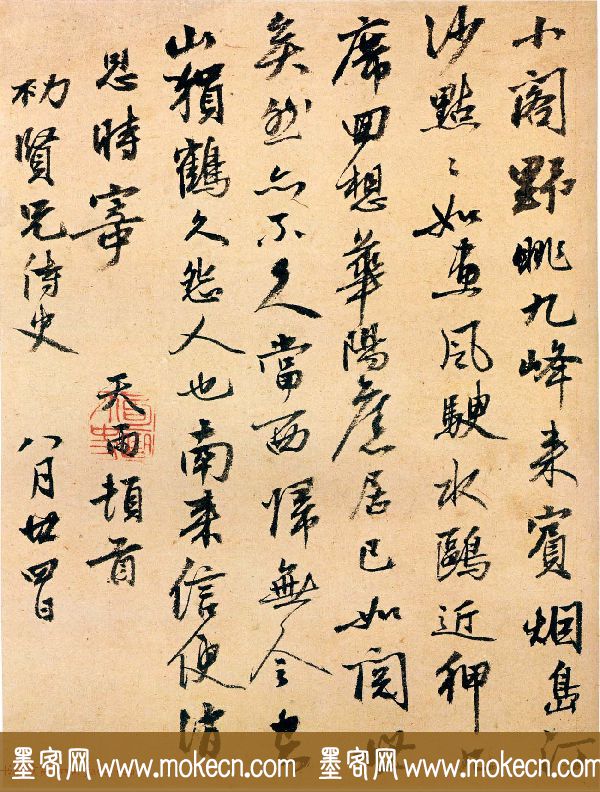 小閣野眺九峰來賓烟島汀
沙點〻如畫風駛水鷗近狎
席回想華陽舊居已如閱
矣然亦不久當西歸無令
山猿鶴久怨人也南來信便
恩時 天雨頓首
賢兄侍史 八月廿四日
墨客网 www.mokecn.com 墨客网 www.mokecn.com 墨客网 www.mokecn.com